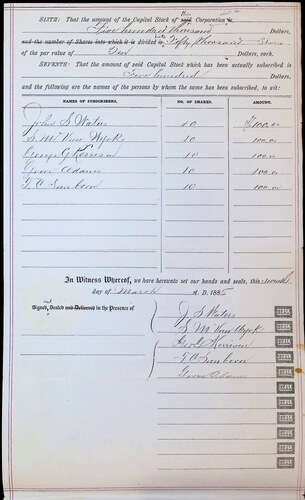 SIXTH: That the amount of the Capital Stock of said Corporation is
Five hundred thousand Dollars,
and the number of Shares into which it is divided is Fifty thousand Shares
of the par value of Ten Dollars, each.
SEVENTH: That the amount of said Capital Stock which has been actually subscribed is
Five hundred Dollars,
and the following are the names of the persons by whom the same has been subscribed, to wit:
NAMES OF SUBSCRIBERS. NO. OF SHARES. AMOUNT.
John S Waters 10 $100.00
S. M. Van Wyck 10 100.00
George G Kenison 10 100.00
Grove Adams 10 100.00
T. C. Sanborn 10 100.00
In Witness Whereof, we have hereunto set our hands and seals, this second
day of March A. D. 1885
Signed, Sealed and Delivered in the Presence of
J S Waters
S. M. Van Wyck
Geo G Kenison
T. C. Sanborn
Grove Adams